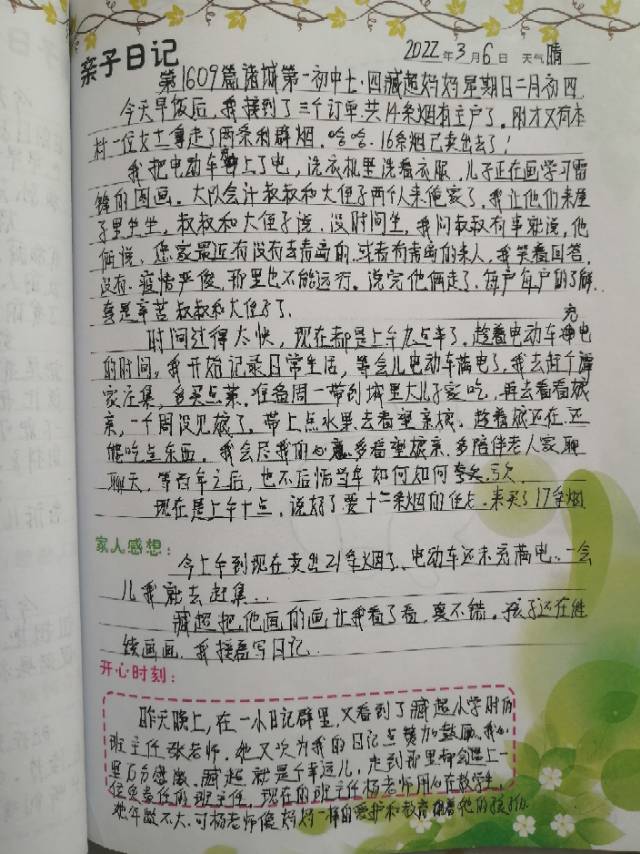 亲子日记 2022年3月6日 天气晴
第1609篇诸城第一初中七·四臧超妈妈星期日二月初四
今天早饭后,我接到了三个订单.共14条烟有主户了。刚才又有本
村一位女士拿走了两条利群烟。哈哈.16条烟已卖出去了!
我把电动车上了电,洗衣机里洗着衣服.儿子正在画学习雷
锋的图画。大队会计叔叔和大侄子两个人来俺家了。我让他们来屋
子里坐坐,叔叔和大侄子说.没时间坐,我问叔叔有事就说,他
俩说,您家最近有没有去青岛的.或者有青岛的来人,我笑着回答.
没有.疫情严俊,那里也不能远行。说完他俩走了.每户每户的了解
真是辛苦叔叔和大侄子了.
时间过得太快,现在都是上午九点半了,趁着电动车充电
的时间,我开始记录日常生活,等会儿电动车满电了,我去赶个谭
家庄集,多买点菜.准备周一带到城里大儿子家吃,再去看看娘
亲,一个周没见娘了.带上点水果去看望亲娘.趁着娘还在还
能吃点东西.我会尽我的心意多看望娘亲.多陪伴老人家聊
聊天.等百年之后,也不后悔当年如何如何
现在是上午十点.说好了要十二条烟的住户.来买了17条烟
家人感想:
今上午到现在卖出21条烟了、电动车还未充满电.一会
儿我就去赶集..
臧超把他画的画让我看了看,真不错。孩子还在继
续画画.我接着写日记.
开心时刻:
昨天晚上,在一小日记群里.又看到了臧超小学时的
班主任张老师.他又次为我的日记点赞加鼓励。我心
里万分感激.臧超就是个幸运儿,走到那里都会遇上一
位负责任的班主任.现在的班主任杨老师用心在教学生.
她年龄不大.可杨老师像妈妈一样的爱护和教育着她的孩们.